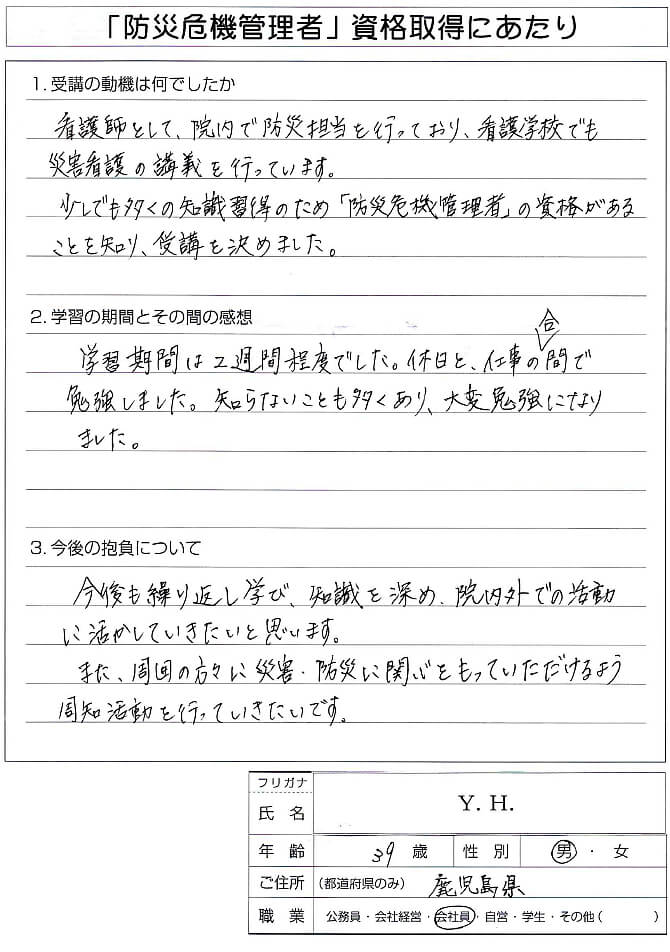 「防災危機管理者」資格取得にあたり
1. 受講の動機は何でしたか
看護師として、院内で防災担当を行っており、看護学校でも
災害看護の講義を行っています。
少しでも多くの知識習得のため「防災危機管理者」の資格がある
ことを知り、受講を決めました。
2. 学習の期間とその間の感想
合
学習期間は2週間程度でした。休日と、仕事の間で
勉強しました。知らないことも多くあり、大変勉強になり
ました。
3. 今後の抱負について
今後も繰り返し学び、知識を深め、院内外での活動
に活かしていきたいと思います。
また、周囲の方々に災害・防災に関心をもっていただけるよう
周知活動を行っていきたいです。
フリガナ
氏名 Y. H.
年齢 39 歳 性別 男・女
ご住所 (都道府県のみ) 鹿児島県
職業 公務員・会社経営・会社員・自営・学生・その他( )